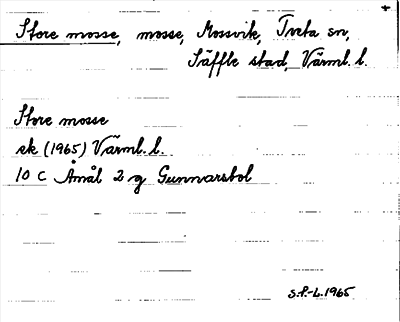 Store mosse, mosse, Mossvik, Tveta sn,
Säffle stad, Värml. l.
Store mosse
ek (1965) Värml. l.
10 C Åmål 2 g Gunnarsbol
S.P.-L. 1965